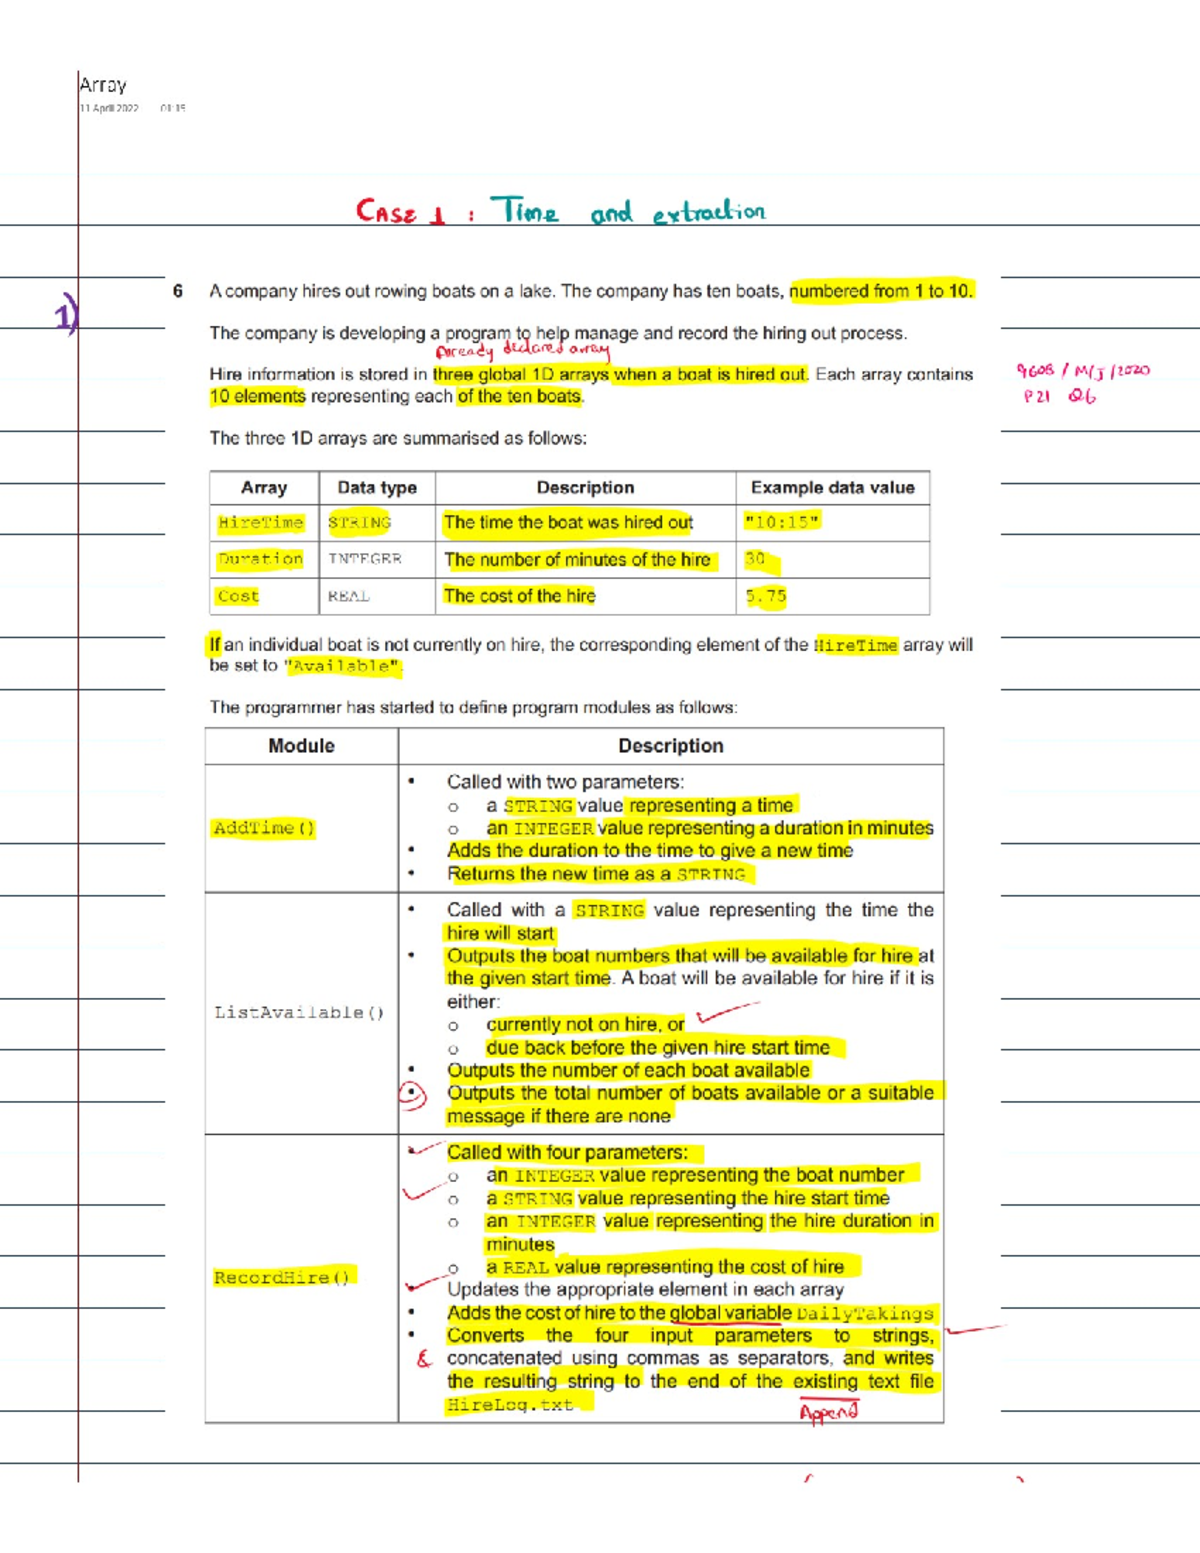 Array
11 April 2022 01:15
CASE 1 : Time and extraction
1)
6 A company hires out rowing boats on a lake. The company has ten boats, numbered from 1 to 10.
The company is developing a program to help manage and record the hiring out process.
Already declared array
Hire information is stored in three global 1D arrays when a boat is hired out. Each array contains
10 elements representing each of the ten boats.
9608 / M/J /2020
P21 Q6
The three 1D arrays are summarised as follows:
Array Data type Description Example data value
HireTime STRING The time the boat was hired out "10:15"
Duration INTEGER The number of minutes of the hire 30
Cost REAL The cost of the hire 5.75
If an individual boat is not currently on hire, the corresponding element of the HireTime array will
be set to "Available".
The programmer has started to define program modules as follows:
Module Description
AddTime()
• Called with two parameters:
o a STRING value representing a time
o an INTEGER value representing a duration in minutes
• Adds the duration to the time to give a new time
• Returns the new time as a STRING
ListAvailable()
• Called with a STRING value representing the time the
hire will start
• Outputs the boat numbers that will be available for hire at
the given start time. A boat will be available for hire if it is
either:
o currently not on hire, or
o due back before the given hire start time
• Outputs the number of each boat available
• Outputs the total number of boats available or a suitable
message if there are none
RecordHire()
• Called with four parameters:
o an INTEGER value representing the boat number
o a STRING value representing the hire start time
o an INTEGER value representing the hire duration in
minutes
o a REAL value representing the cost of hire
Updates the appropriate element in each array
• Adds the cost of hire to the global variable DailyTakings
• Converts the four input parameters to strings,
& concatenated using commas as separators, and writes
the resulting string to the end of the existing text file
HireLog.txt
Append